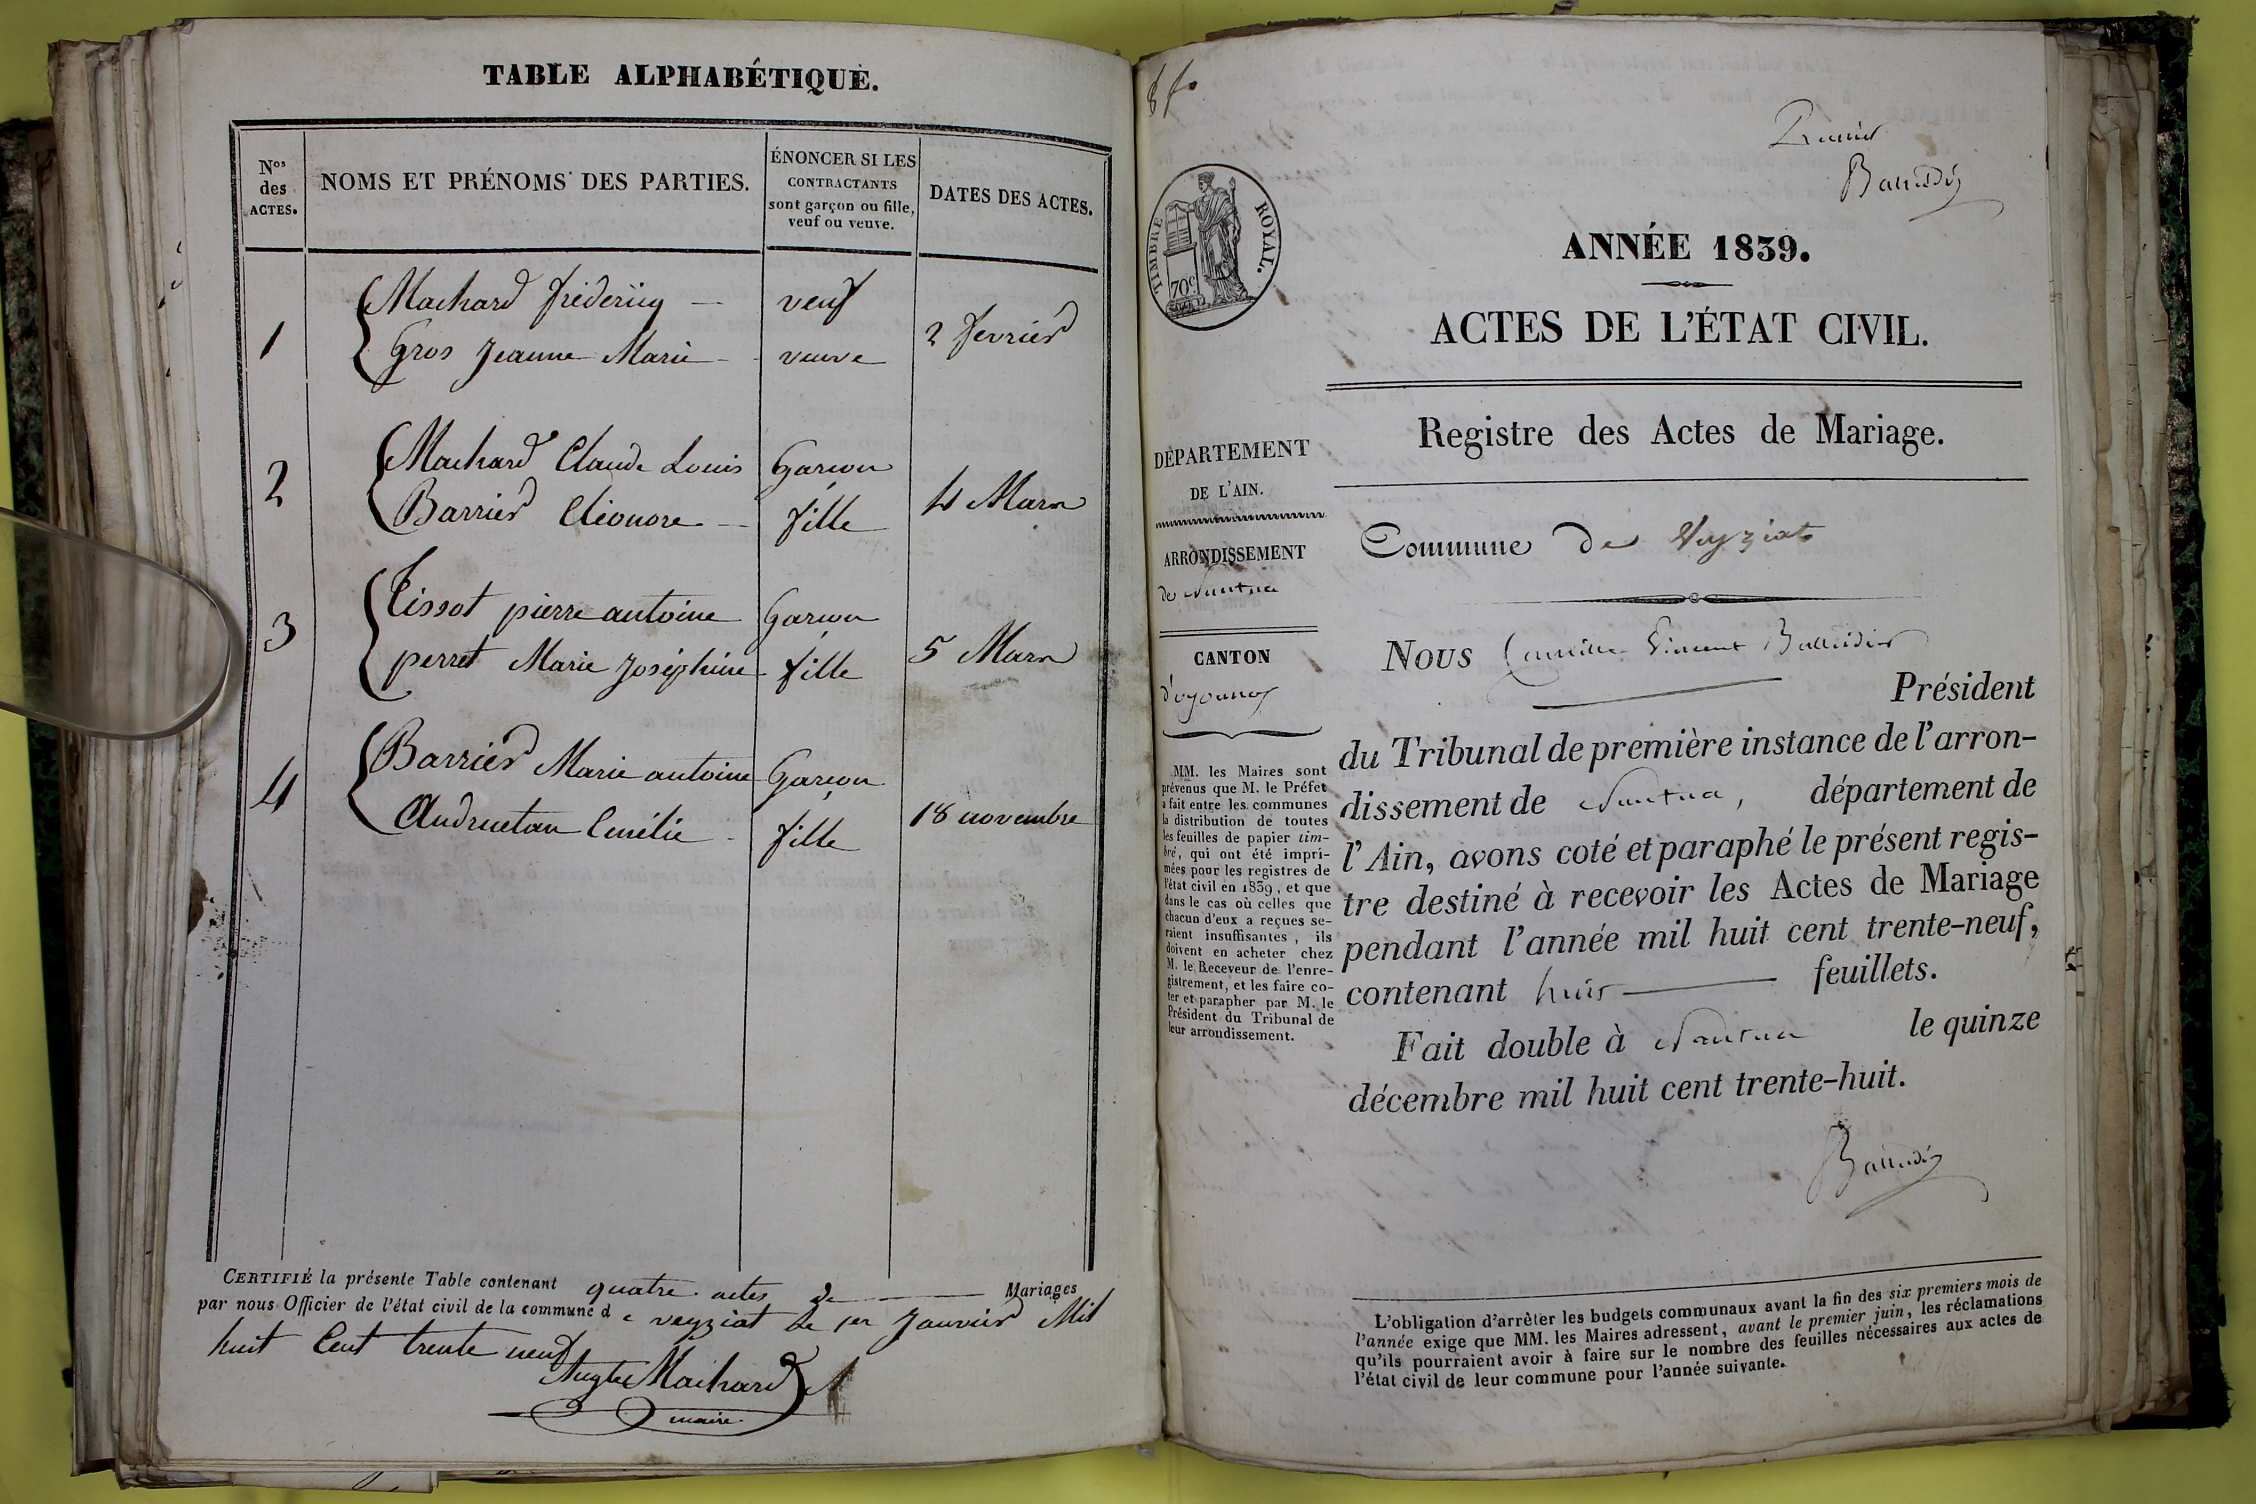 TABLE ALPHABÉTIQUE.
Nos des ACTES.
NOMS ET PRÉNOMS DES PARTIES.
ÉNONCER SI LES
CONTRACTANTS
sont garçon ou fille,
veuf ou veuve.
DATES DES ACTES.
1
Machard frédéricq — veuf
Gros Jeanne Marie - veuve
2 fevrier
2
Machard Claude Louis Garcon
Barrier Eléonore - fille
4 Mars
3
Tissot pierre antoine Garcon
perret Marie Joséphine fille
5 Mars
4
Barrier Marie antoine Garçon
Audruetan Emélie - fille
18 novembre
CERTIFIÉ la présente Table contenant quatre actes de — Mariages
par nous Officier de l'état civil de la commune de veyziat le 1er Janvier Mil
huit Cent trente neuf
Machard
maire
TIMBRE ROYAL.
70c
ANNÉE 1839.
ACTES DE L'ÉTAT CIVIL.
Registre des Actes de Mariage.
DÉPARTEMENT
DE L'AIN.
ARRONDISSEMENT
de Nantua
CANTON
d'oyonnax
MM. les Maires sont
prévenus que M. le Préfet
a fait entre les communes
la distribution de toutes
les feuilles de papier tim-
bré, qui ont été impri-
mées pour les registres de
l'état civil en 1839, et que
dans le cas où celles que
chacun d'eux a reçues se-
raient insuffisantes, ils
doivent en acheter chez
M. le Receveur de l'enre-
gistrement, et les faire co-
ter et parapher par M. le
Président du Tribunal de
leur arrondissement.
Commune de Veyziat
NOUS Camille Vincent
Président
du Tribunal de première instance de l'arron-
dissement de Nantua, département de
l'Ain, avons coté et paraphé le présent regis-
tre destiné à recevoir les Actes de Mariage
pendant l'année mil huit cent trente-neuf,
contenant huit — feuillets.
Fait double à Nantua le quinze
décembre mil huit cent trente-huit.
L'obligation d'arrêter les budgets communaux avant la fin des six premiers mois de
l'année exige que MM. les Maires adressent, avant le premier juin, les réclamations
qu'ils pourraient avoir à faire sur le nombre des feuilles nécessaires aux actes de
l'état civil de leur commune pour l'année suivante.